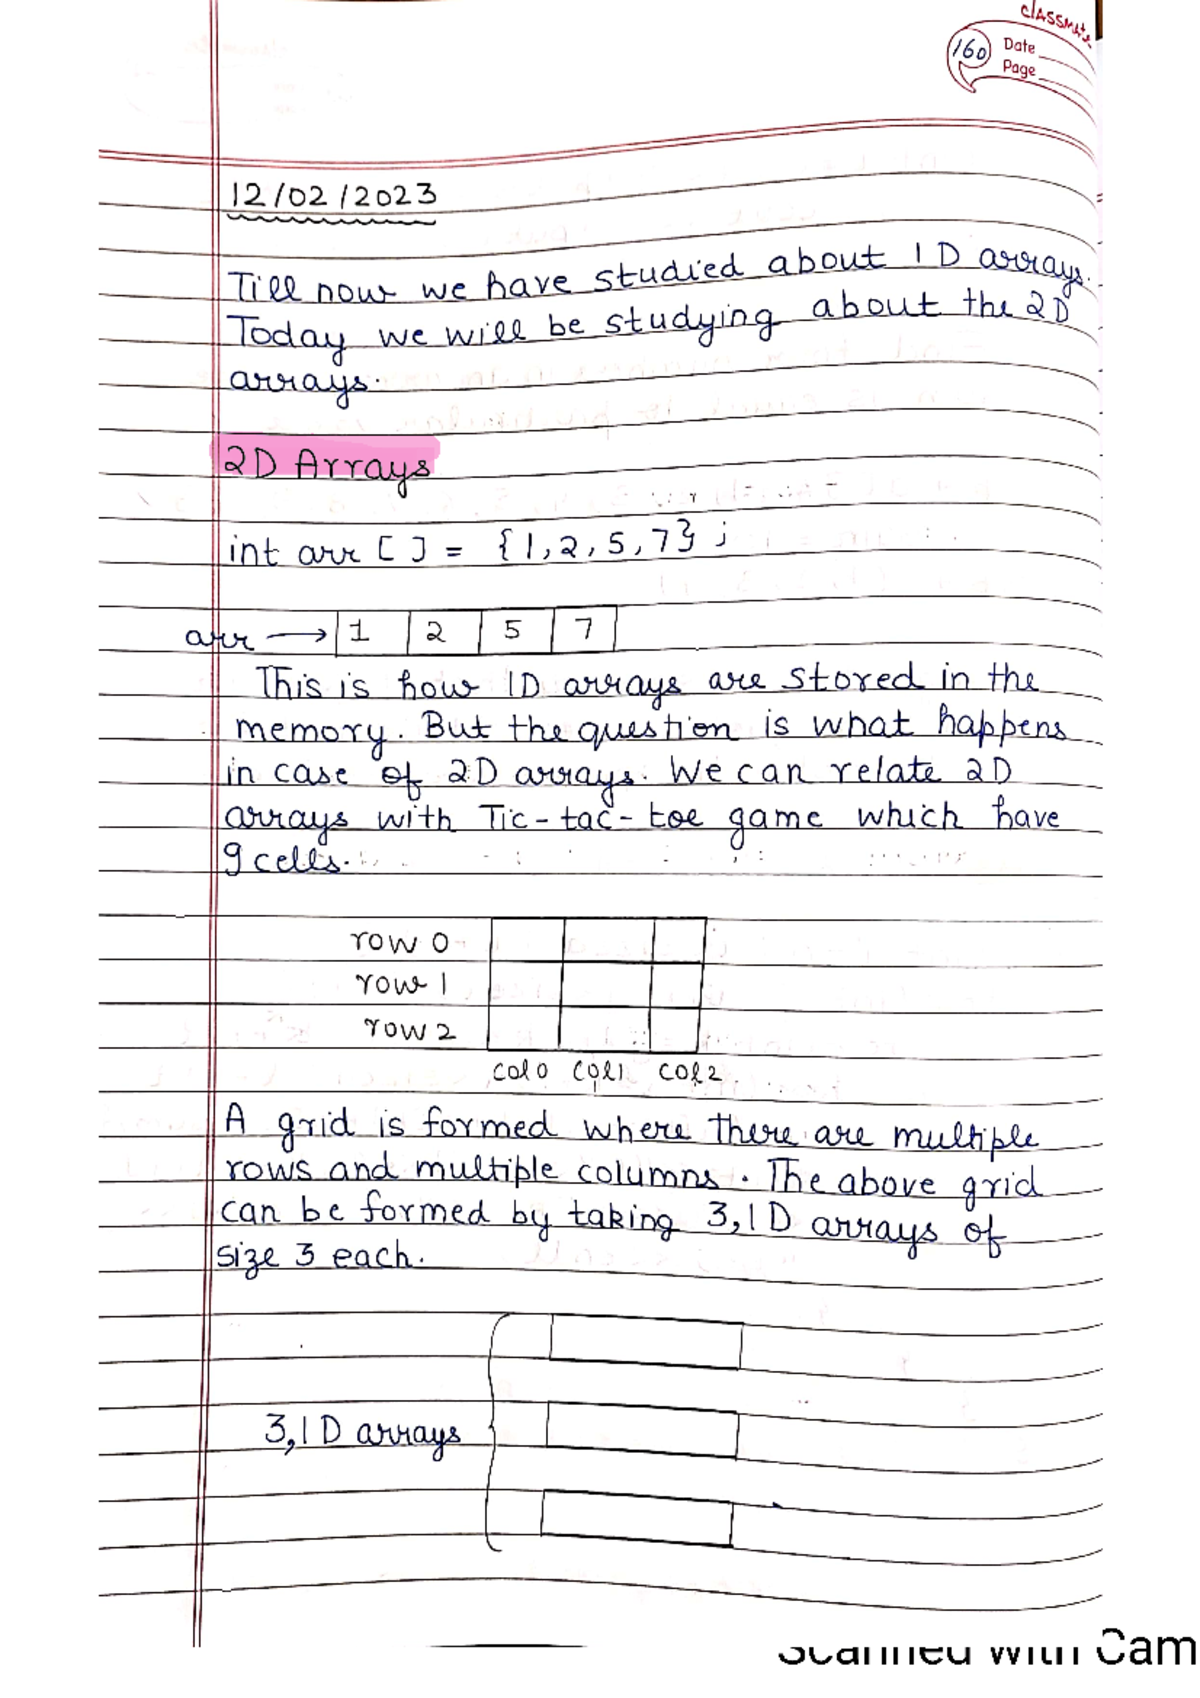 classmate
160
Date
Page
12/02/2023
Till now we have studied about 1D arrays.
Today we will be studying about the 2D
arrays.
2D Arrays
int arr [ ] = {1, 2, 5, 7} ;
arr → 1 2 5 7
This is how 1D arrays are stored in the
memory. But the question is what happens
in case of 2D arrays. We can relate 2D
arrays with Tic-tac-toe game which have
9 cells.
row 0
row 1
row 2
col0 col1 col2
A grid is formed where there are multiple
rows and multiple columns. The above grid
can be formed by taking 3, 1D arrays of
size 3 each.
3, 1D arrays
Scanned with Cam